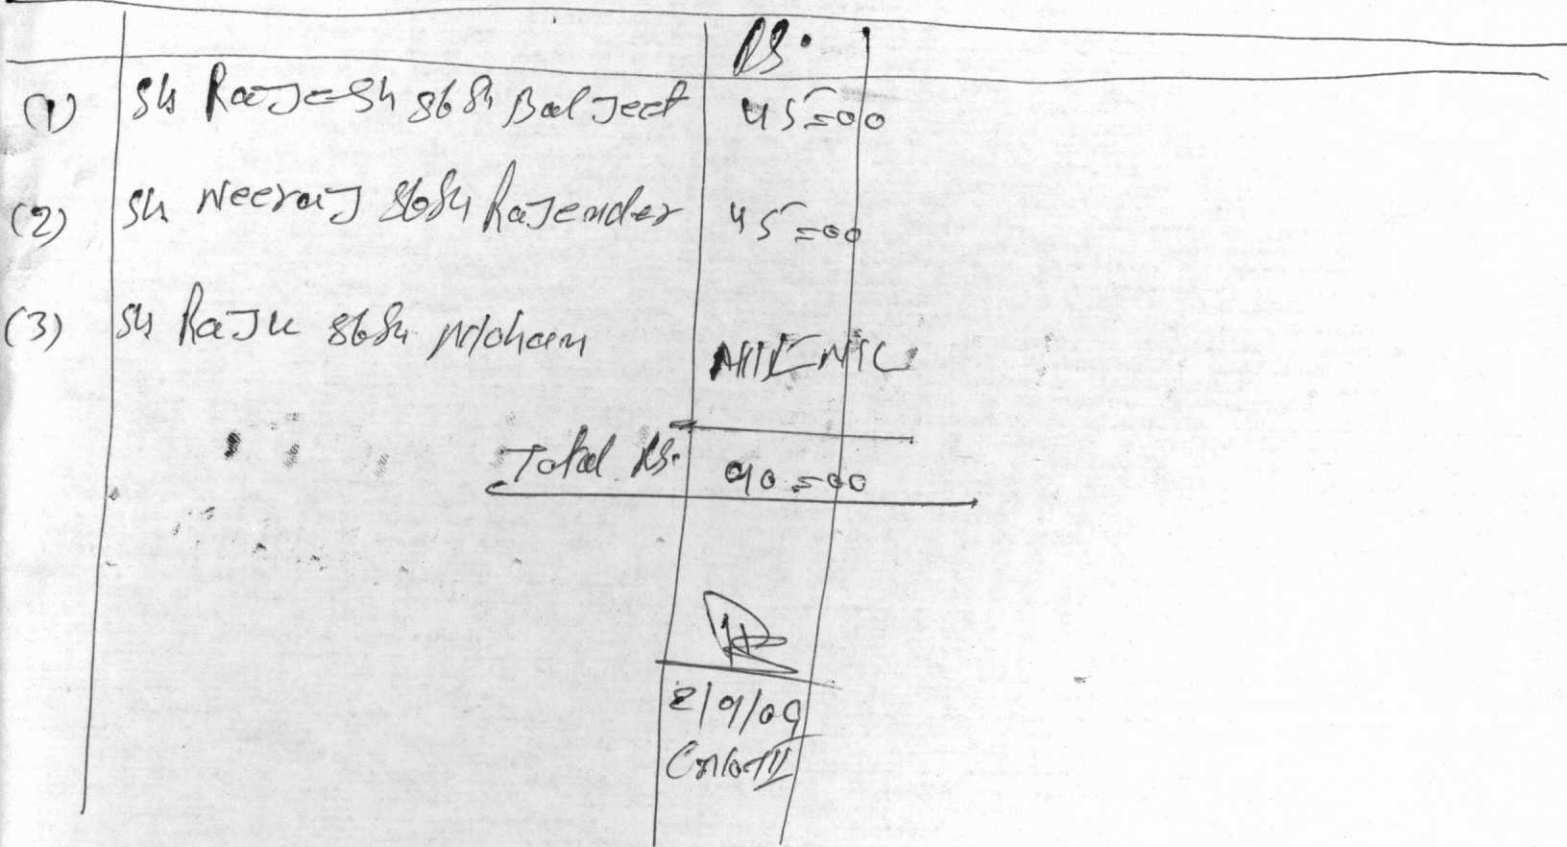 RS.
(1) Sh Rajesh S/o Sh Baljeet 45=00
(2) Sh Neeraj S/o Sh Rajender 45=00
(3) Sh Raju S/o Sh Mohan
Total Rs. 90=00
2/9/09